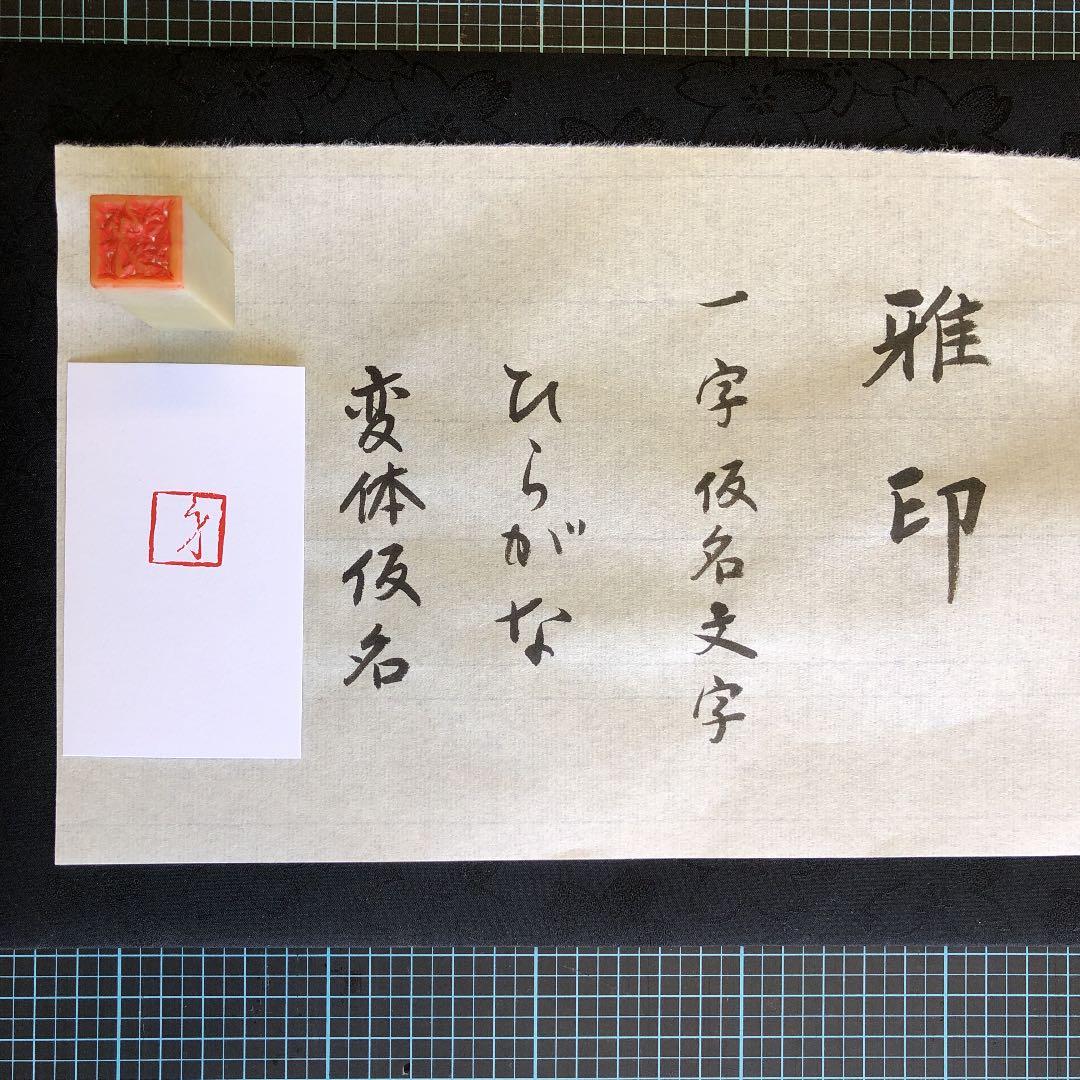 雅印
一字仮名文字
ひらがな
変体仮名